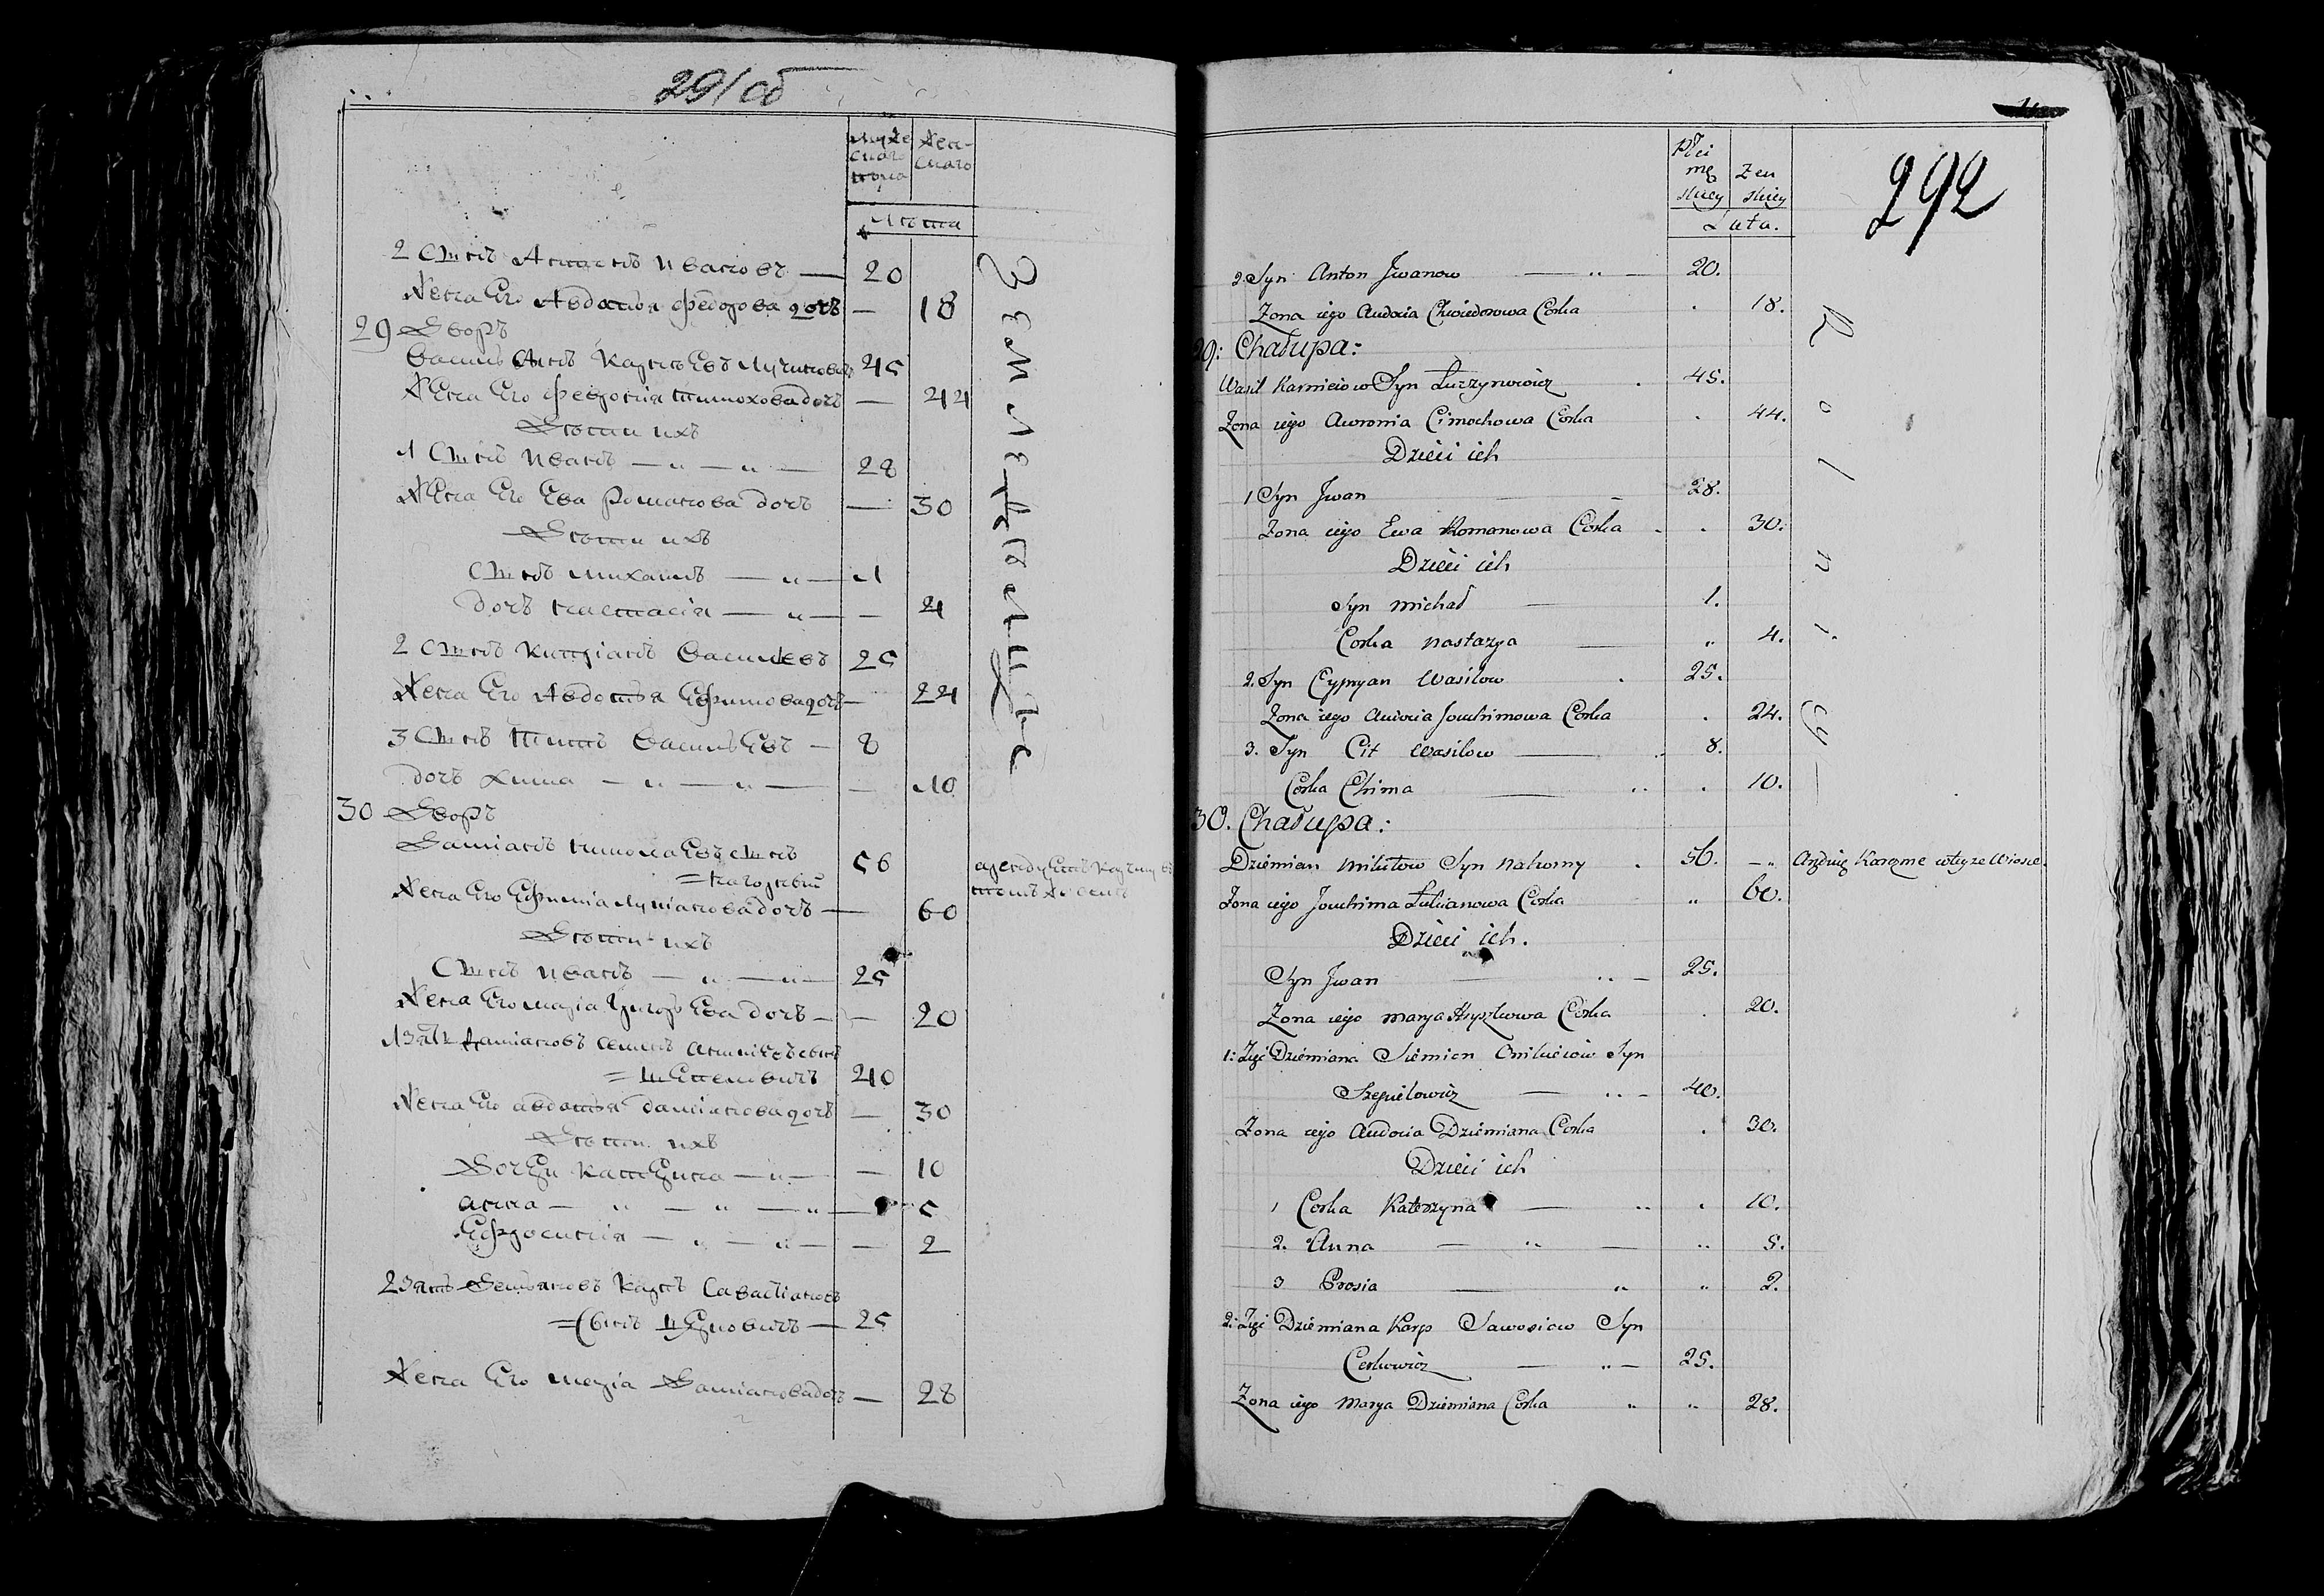 291 об
Мужескаго пола
Женскаго
Лѣта
2 Сынъ Антонъ Ивановъ — 20
Жена Его Авдотья Федорова дочь — 18
29 Дворъ
Василь Сынъ Карнѣевъ Лучиновичь 45
Жена Его Феврония Тимохова дочь — 44
Дѣти ихъ
1 Сынъ Иванъ — „ — „ — 28
Жена Его Ева Романова дочь — 30
Дѣти ихъ
Сынъ Михаилъ — „ — 1
дочь Настасія — „ — — 4
2 Сынъ Кипріанъ Васильевъ 25
Жена Его Авдотья Ефимова дочь — 24
3 Сынъ Титъ Васильевъ — 8
дочь Химма — „ — „ — — 10
30 Дворъ
Даміанъ Сынъ 56
Жена Его Ефимія Луціанова дочь — 60
Дѣти ихъ
Сынъ Иванъ — „ — „ — 25
Жена Его Марія дочь — — 20
1 Зять Даміановъ Семенъ Сынъ
= 40
Жена Его Авдотья Даміанова дочь — 30
Дѣти ихъ
Дочери Катерина — „ — — 10
Анна — „ — „ — „ — 5
Ефросинія — „ — „ — — 2
2 Зять Демьяновъ Карпъ Савастіановъ
= Сынъ — 25
Жена Его Марія Даміанова дочь — 28
Земледѣльцы
арендуетъ Карчму въ
томъ же селѣ
292
Płci
męskiey
Zenskiey
Lata.
2. Syn Anton Jwanow — „ — 20.
Zona iego Audocia Chwiedorowa Corka . 18.
29: Chałupa:
Wasil Karnieiow Syn Łuczynowicz . 45.
Zona iego Awronia Cimochowa Corka . 44.
Dzieci ich
1 Syn Jwan — 28.
Zona iego Ewa Romanowa Corka . . 30.
Dzieci ich
Syn Michał — 1.
Corka Nastazya — „ 4.
2. Syn Cypryan Wasilow . 25.
Zona iego Audocia Jouchimowa Corka . 24.
3. Syn Cit Wasilow — 8.
Corka Chima — „ . 10.
30. Chałupa:
Dziemian Syn Nahorny . 56. — „ Aręduię Karczmę w teyze Wiosce.
Zona iego Jouchima Łukianowa Corka „ 60.
Dzieci ich.
Syn Jwan — „ — 25.
Zona iego Marya Corka . 20.
1: Zięć Dziemiana Siemien Syn
— „ — 40.
Zona iego Audocia Dziemiana Corka . 30.
Dzieci ich
1 Corka Katerzyna — „ . 10.
2. Anna — „ — „ 5.
3 Prosia — „ „ 2.
2: Zięć Dziemiana Karp Sawosiow Syn
Cerkowicz — „ — 25.
Zona iego Marya Dziemiana Corka „ „ 28.
Rolnicy —